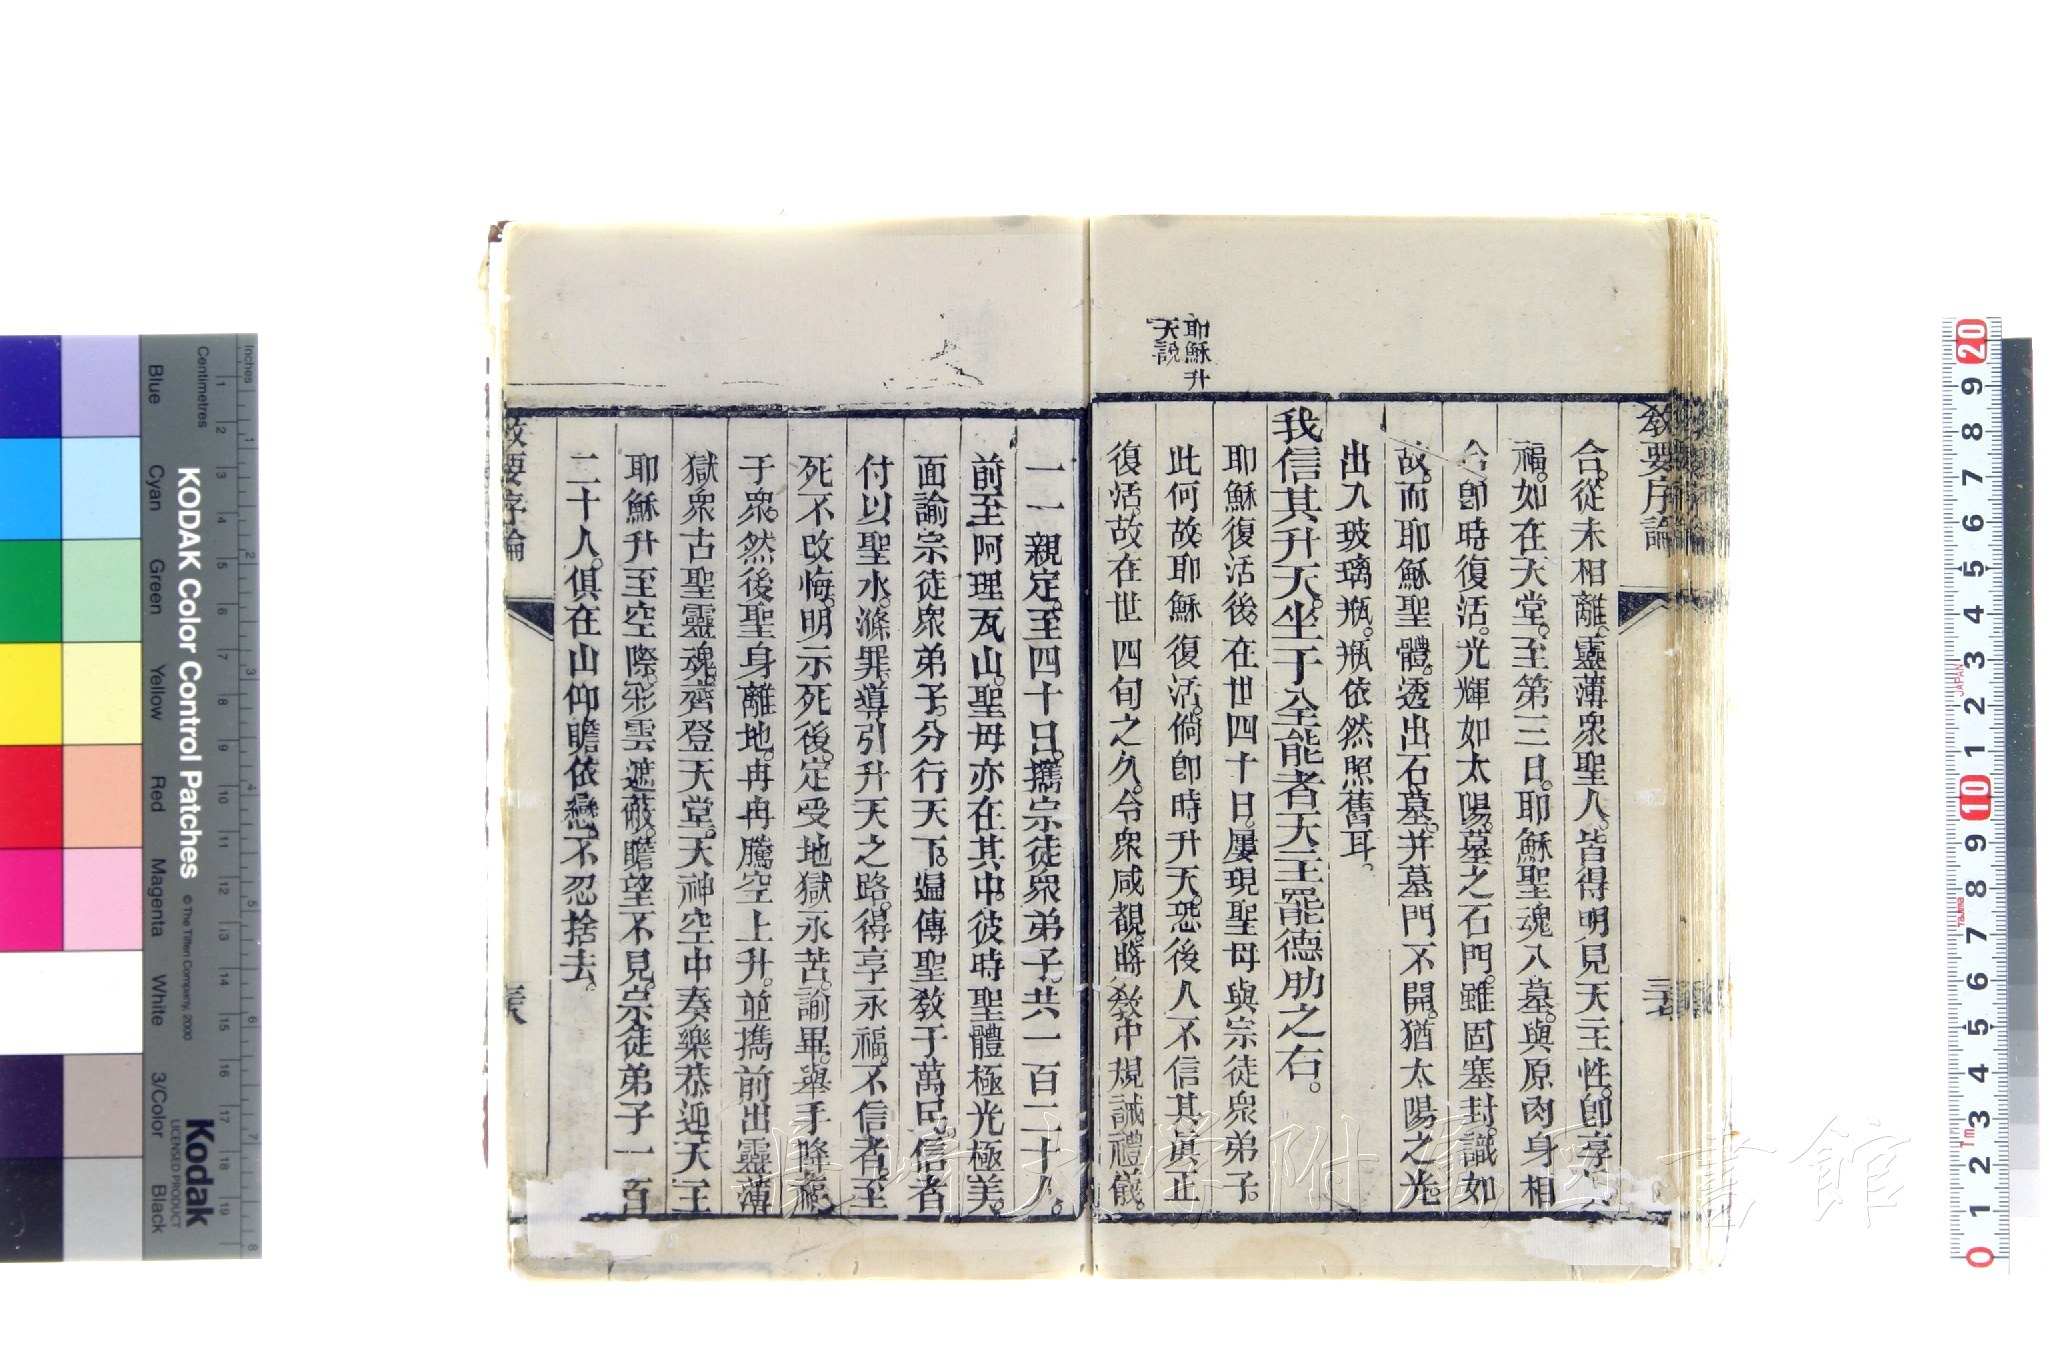 教要序論
三七
合。從未相離。靈薄衆聖人。皆得明見天主性。卽享真
福。如在天堂。至第三日。耶穌聖魂入墓。與原肉身相
合卽時復活。光輝如太陽。墓之石門。雖固塞封識如
故。而耶穌聖體。透出石墓。并墓門不開。猶太陽之光。
出入玻璃瓶。瓶依然照舊耳。
我信其升天。坐于全能者天主罷德肋之右。
耶穌升
天說
耶穌復活後。在世四十日。屢現聖母與宗徒衆弟子。
此何故。耶穌復活。倘卽時升天。恐後人不信其眞。止
復活。故在世四旬之久。令衆咸覩。將敎中規誡禮儀。
一一親定。至四十日。攜宗徒衆弟子。共一百二十人。
前至阿理瓦山。聖母亦在其中。彼時聖體極光極美。
面諭宗徒衆弟子。分行天下。遍傳聖敎于萬民。信者
付以聖水。滌罪。導引升天之路。得享永福。不信者。至
死不改悔。明示死後。定受地獄永苦。諭畢。舉手降福
于衆。然後聖身離地。冉冉騰空上升。並攜前出靈薄
獄衆古聖靈魂。齊登天堂。天神空中奏樂恭迎天主
耶穌升至空際。彩雲遮蔽。瞻望不見。宗徒弟子一百
二十人。俱在山仰瞻依戀。不忍捨去。
教要序論
三八
Blue
Cyan
Green
Yellow
Red
Magenta
White
3/Color
Black
KODAK Color Control Patches
© The Tiffen Company, 2000
Kodak
LICENSED PRODUCT
Centimetres
Inches
附属図書館